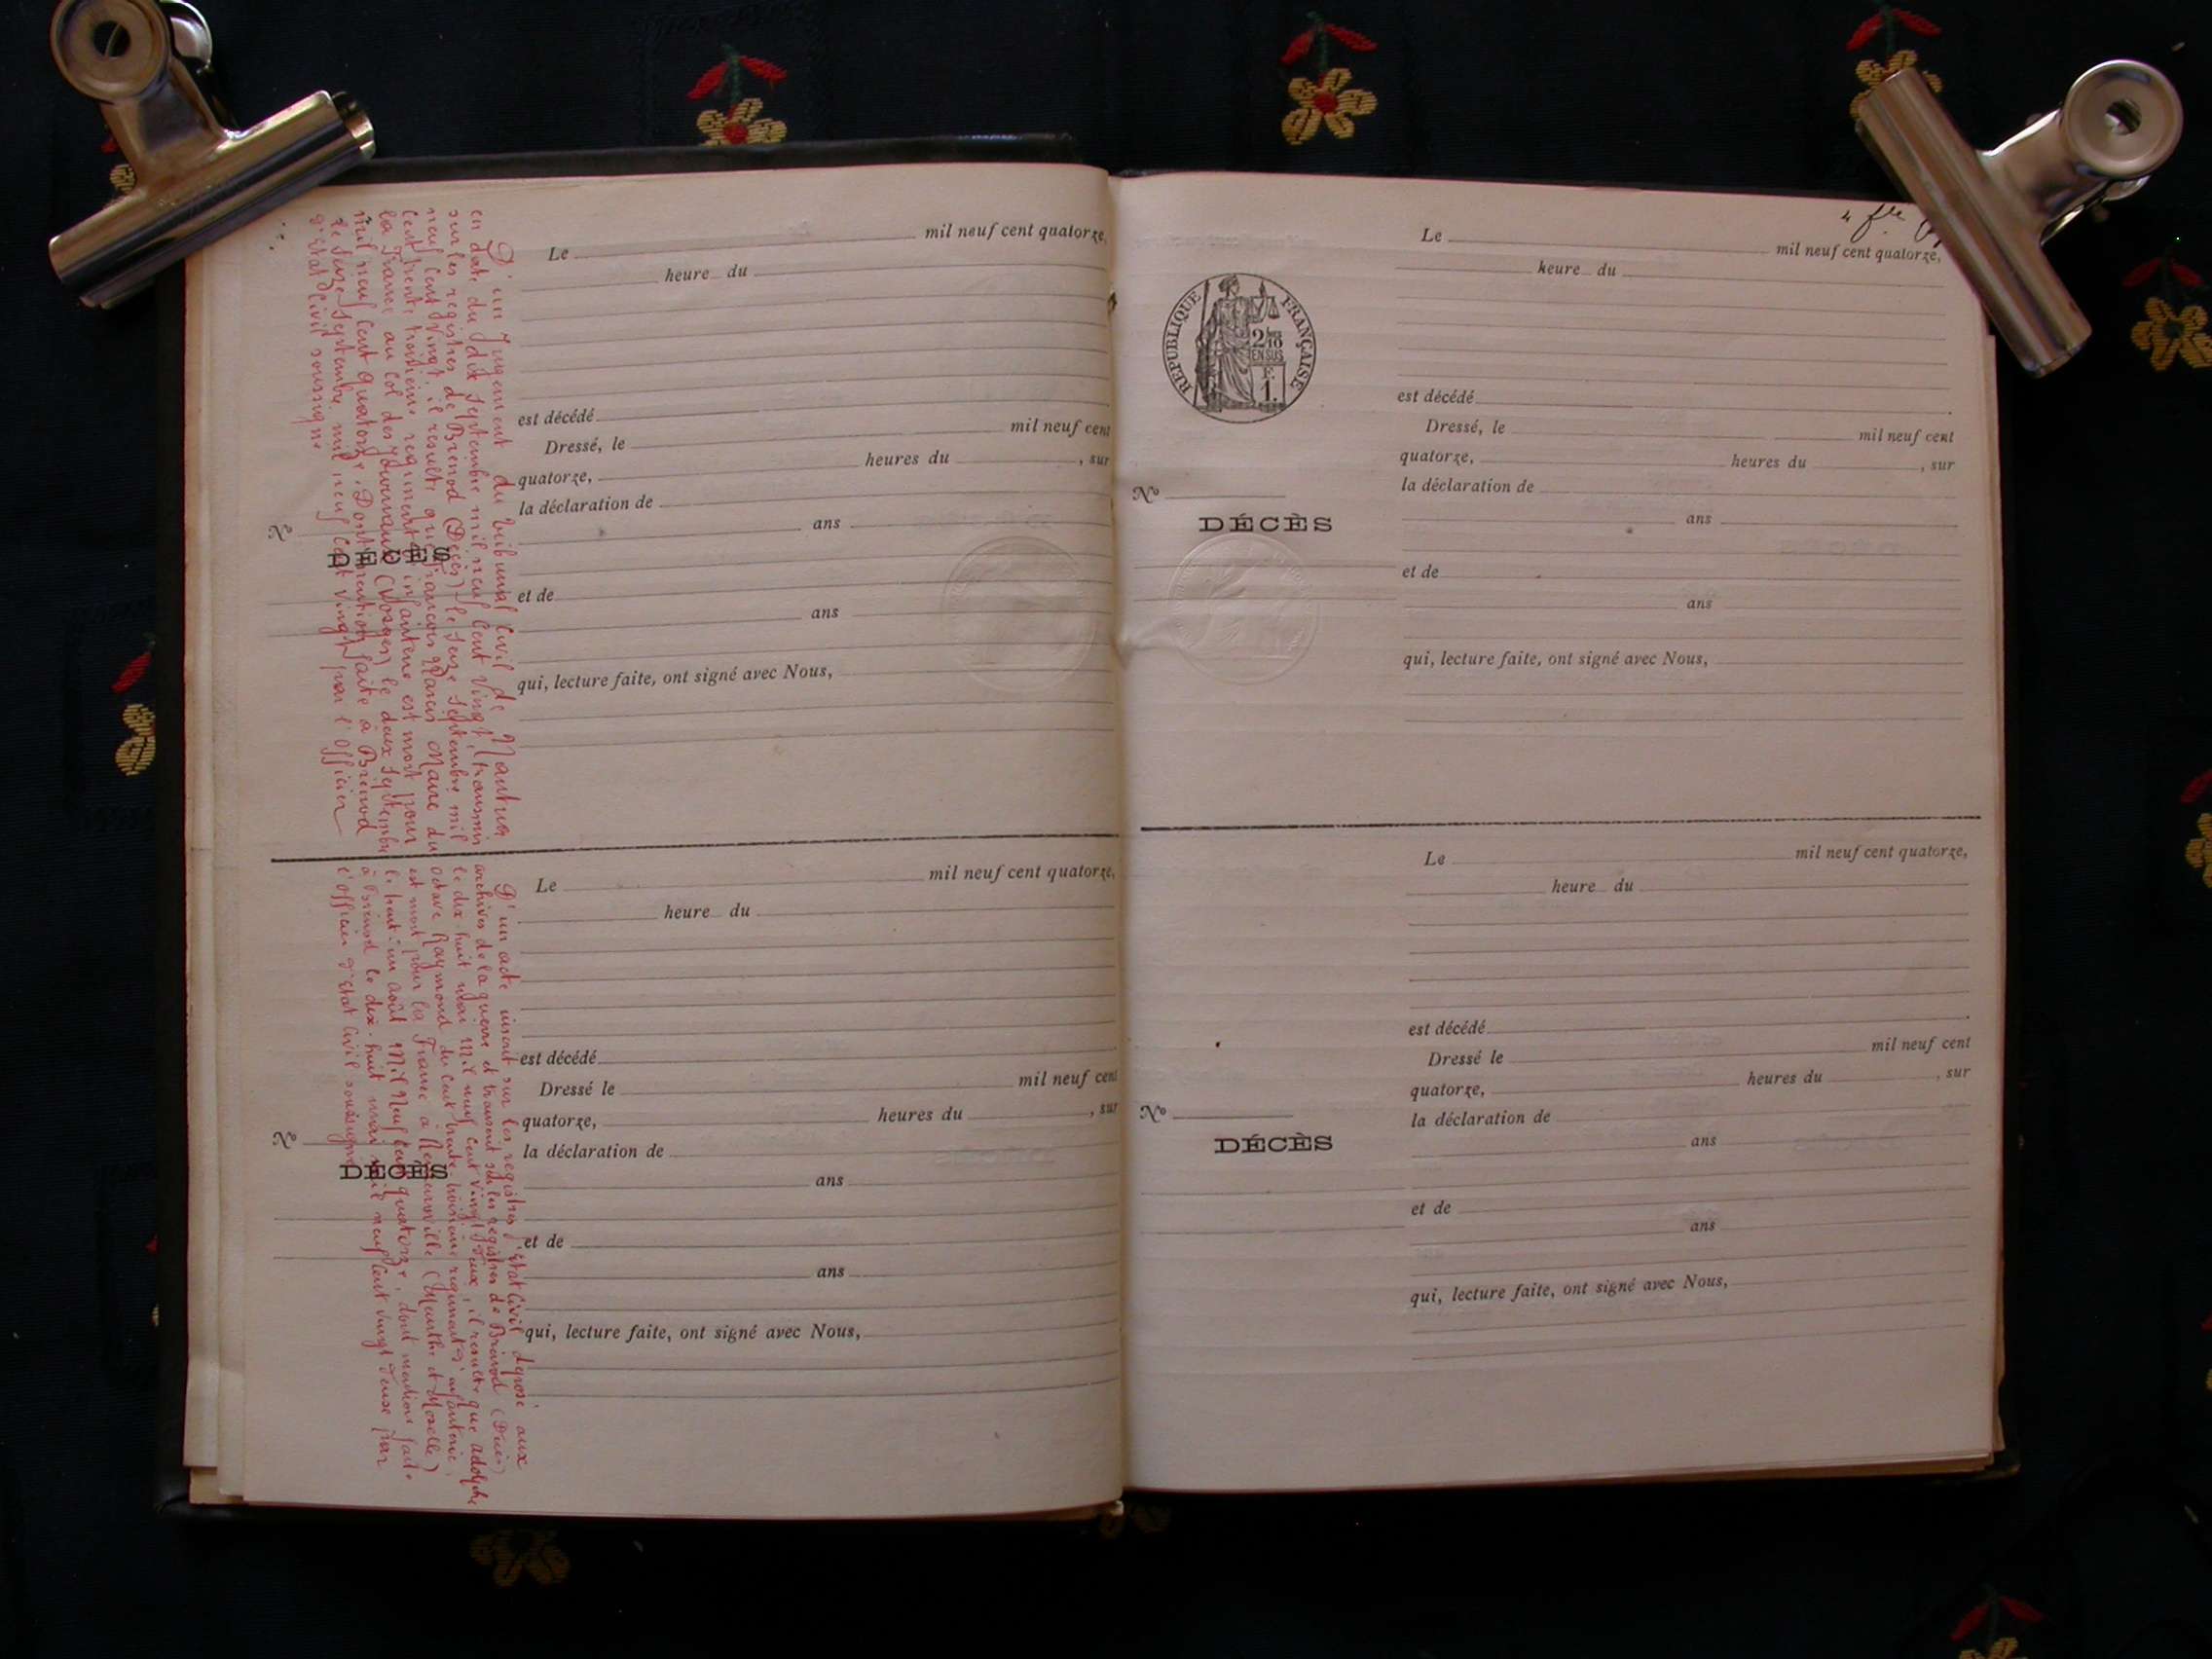 D'un Jugement du tribunal Civil de Nantua
en date du dix Septembre mil neuf Cent Vingt, transmis
sur les registres de Brénod (Décès) le seize Septembre mil
neuf Cent Vingt, il résulte que François Marius Maure du
Cent trente troisième régiment d'infanterie est mort pour
la France au Col des Journaux (Vosges) le deux Septembre
mil neuf Cent quatorze. Dont mention faite à Brénod
le seize Septembre mil neuf Cent Vingt par l'Officier
d'Etat Civil soussigné
Le mil neuf cent quatorze,
heure du
est décédé
Dressé, le mil neuf cent
quatorze, heures du , sur
la déclaration de
ans
No
DÉCÈS
et de
ans
qui, lecture faite, ont signé avec Nous,
D'un acte inscrit sur les registres d'Etat Civil déposé aux
archives de la guerre et transcrit sur les registres de Brénod (Décès)
le dix-huit mars Mil neuf Cent Vingt Deux, il résulte que Adolphe
Octave Raymond du Cent trente-troisième régiment d'infanterie,
est mort pour la France à (Meurthe et Moselle)
le trente-un août Mil Neuf Cent quatorze, dont mention faite
à Brénod le dix-huit mars mil neuf Cent vingt Deux par
l'Officier d'Etat Civil soussigné
Le mil neuf cent quatorze,
heure du
est décédé
Dressé le mil neuf cent
quatorze, heures du , sur
No
la déclaration de
DÉCÈS
ans
et de
ans
qui, lecture faite, ont signé avec Nous,
4 fre
Le mil neuf cent quatorze,
heure du
RÉPUBLIQUE FRANÇAISE
2/10
EN SUS
F.
1.
est décédé
Dressé, le mil neuf cent
quatorze, heures du , sur
la déclaration de
No
DÉCÈS
ans
et de
ans
qui, lecture faite, ont signé avec Nous,
Le mil neuf cent quatorze,
heure du
est décédé
Dressé le mil neuf cent
quatorze, heures du , sur
No
la déclaration de
DÉCÈS
ans
et de
ans
qui, lecture faite, ont signé avec Nous,